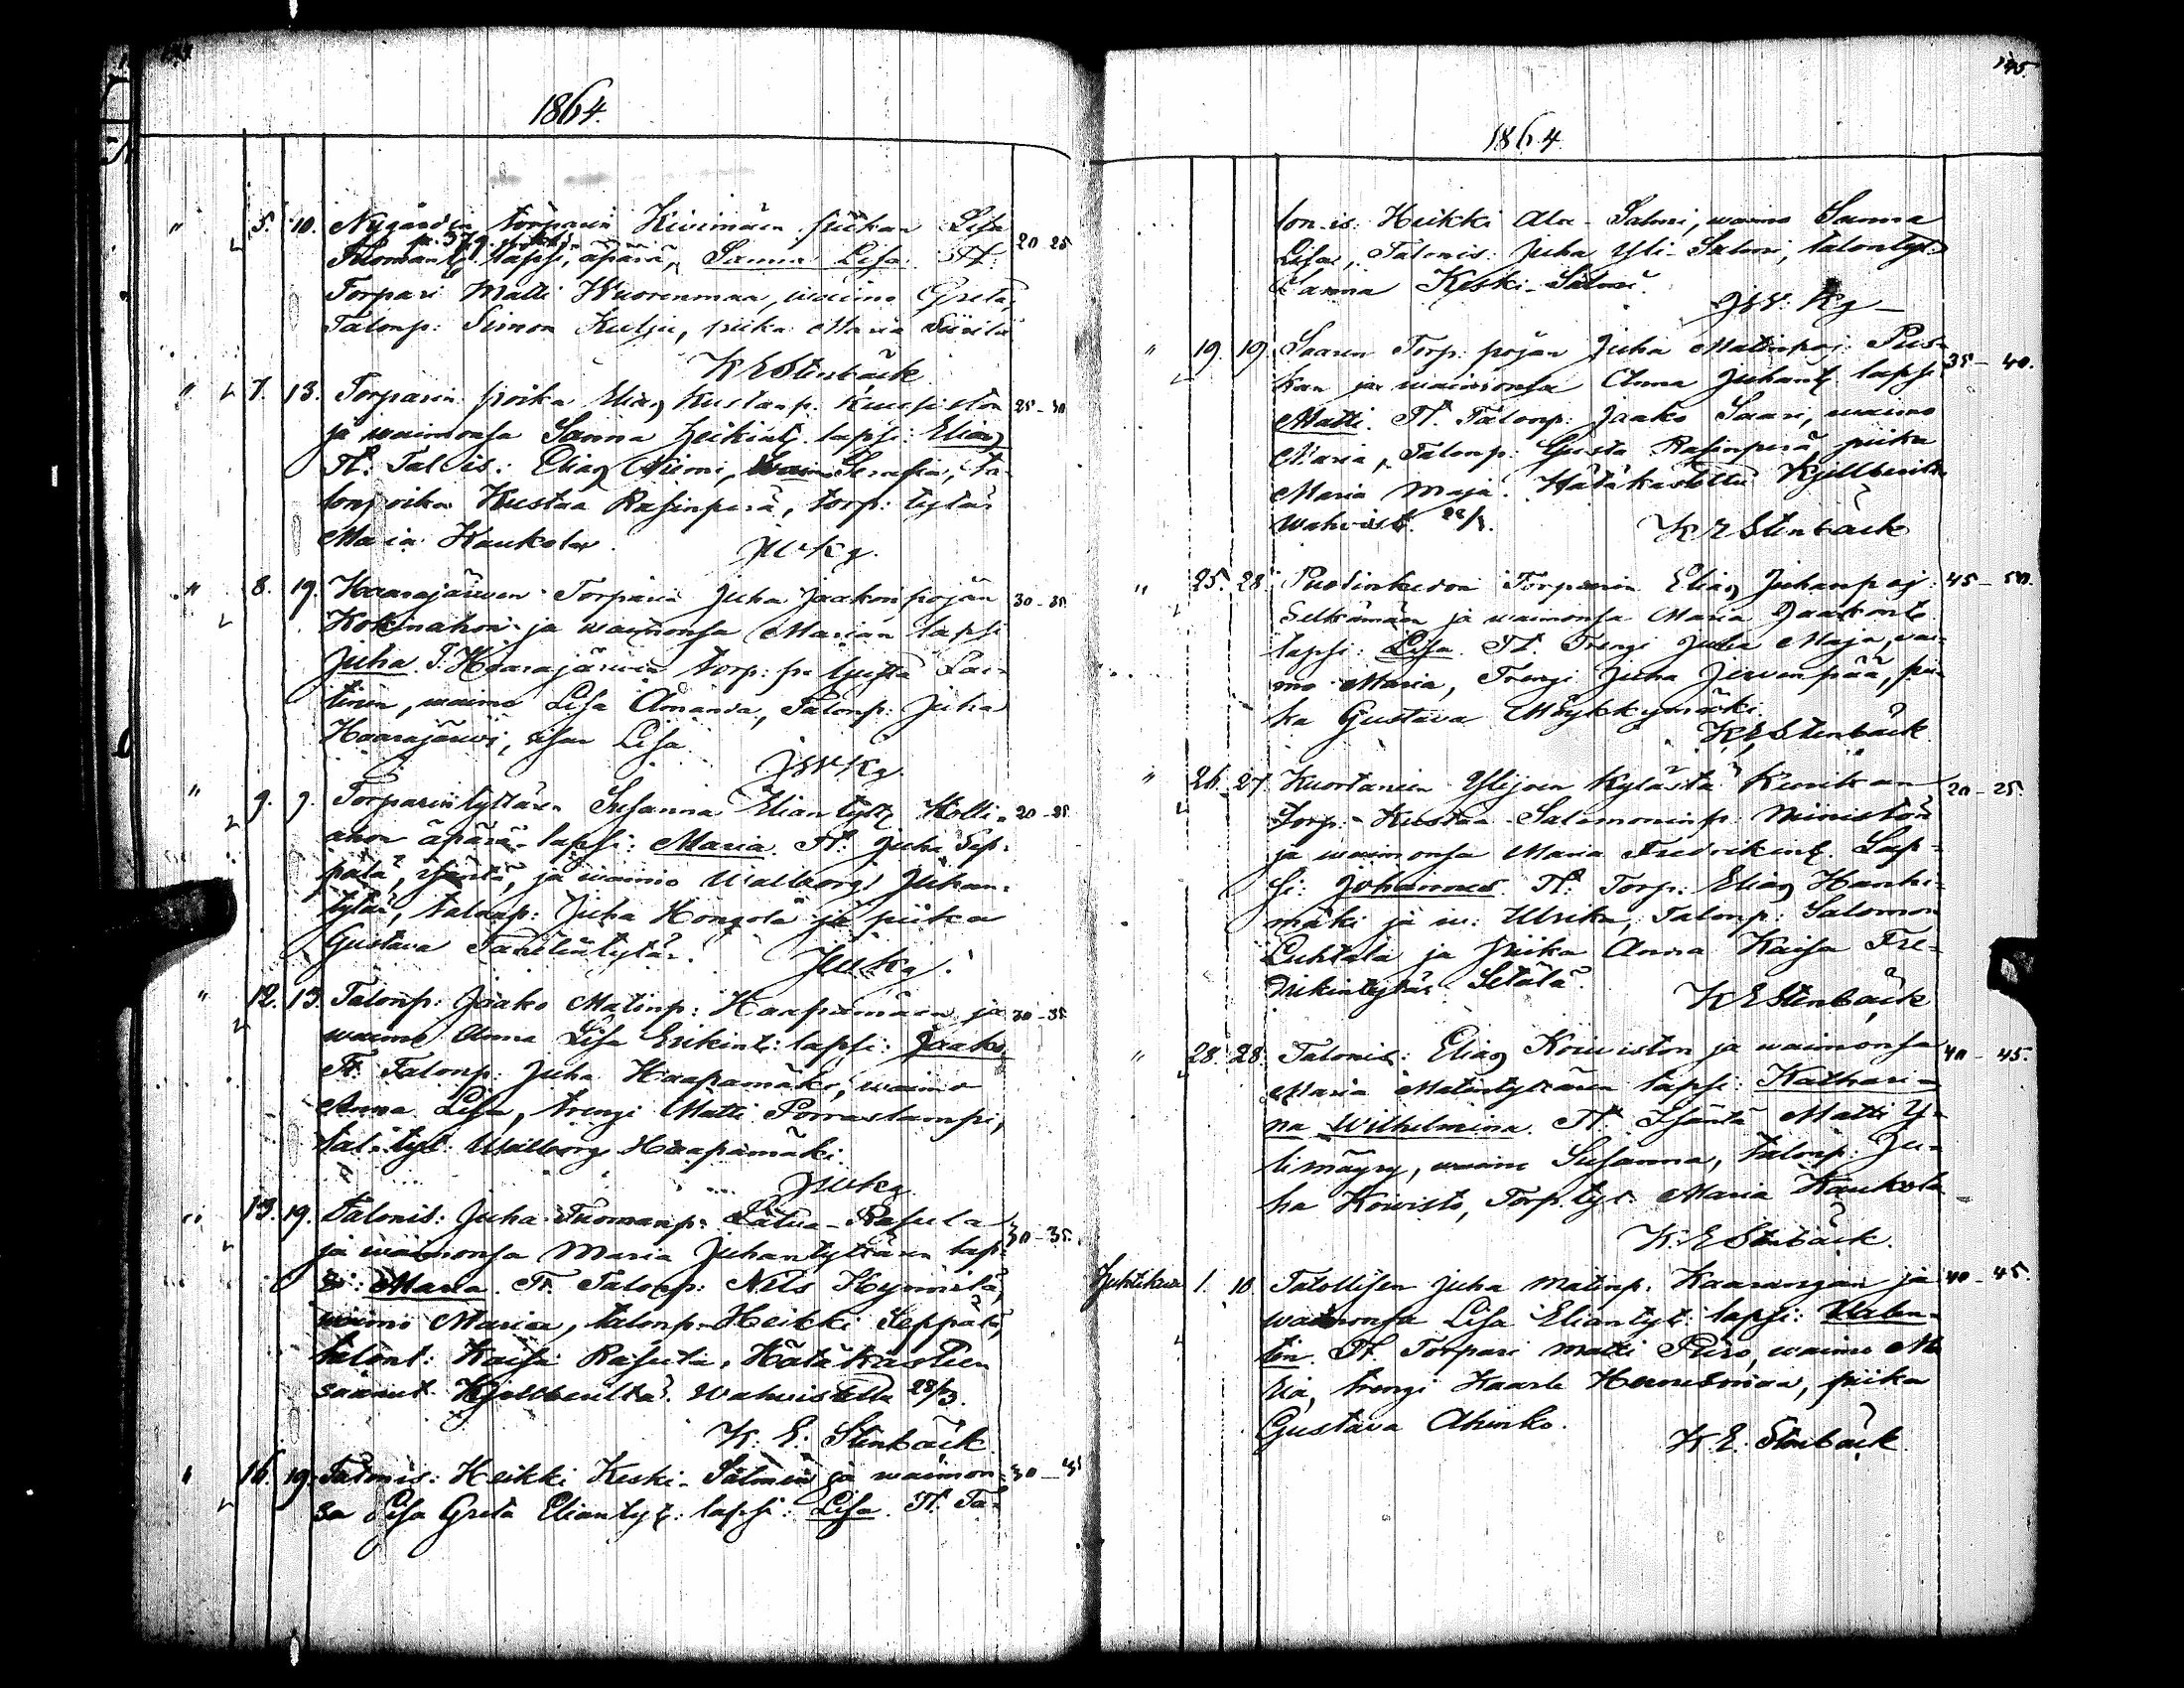 1864.
" 5. 10. Nygårdin torparin Kivimäen piikan Lisa 20-25
p. 379.
Tuomantz lapsi, äpärä, Sanna Lisa. Tt:
Torpari Matti Wuorenmaa, waimo Greta,
Talonp: Simon Kulju, piika Maria
K E Stenbäck
" 7. 13. Torparin poika Elias Kustanp. Kuusiston 25-30
ja waimonsa Sanna Heikintz lapsi: Elias
Tt: Talis: Elias Niemi, waim Serafia, ta-
lonpoika Kustaa Rasinperä, torp: tytär
Maria Kaukola.
JWKg.
" 8. 19. Haarajärwen Torparin Juha Jaakonpojan 30-35
Kokinahon ja waimonsa Marian lapsi
Juha. T: Haarajärwen torp: po Gusta Lai-
tinen, waimo Lisa Amanda, Talonp: Juha
Haarajärwi, sisar Lisa.
JWKg.
" 9. 9. Torparintyttären Susanna Eliantytz Holli- 20-25
ahon äpärä-lapsi: Maria. Tt: Juha Sep-
pälä, Isäntä, ja waimo Walborg Juhan-
tytär, talonp: Juha Hongola ja piika
Gustava Tanelintytär.
JWKg.
" 12. 13. Talonp: Jaako Matinp: Haapamäen ja 30-35
waimo Anna Lisa Erikint: lapsi: Jaako
Tt. Talonp: Juha Haapamäki, waimo
Anna Lisa, trengi Matti Porraslampi,
tal: tyt: Walborg Haapamäki.
JWKg.
" 13. 19. Talonis: Juha Tuomanp: Latva-Rasula 30-35.
ja waimonsa Maria Juhantyttären lap-
si: Maria. Tt. Talonp: Nils Hynnilä,
waimo Maria, talonp: Heikki Seppälä,
talont: Kaisa Rasula. Hätäkasteen
saanut Kjellberilta. Wahwistettu 28/3.
K. E. Stenbäck.
" 16. 19. Talonis: Heikki Keski-Salmen ja waimon- 30-35
sa Lisa Greta Eliantyt: lapsi: Lisa. Tt. Ta-
145.
1864
lon is: Heikki Ala-Salmi, waimo Sanna
Lisa, Talonis: Juha Yli-Salmi, talontyt:
Sanna Keski-Salmi.
JW. Kg
" 19. 19. Saaren Torp: pojan Juha Matinpoj: Pus- 35-40.
kan ja waimonsa Anna Juhantz lapsi
Matti. Tt. Talonp: Jaako Saari, waimo
Maria, Talonp: Gusta Rasinperä, piika
Maria Maja. Hätäkastettu Kjellberilta
Wahwist. 28/3.
K E Stenbäck
" 25. 28. Puolinkedon Torparin Elias Juhanpoj: 45-50.
Selkämään ja waimonsa Maria Jaakont:
lapsi: Lisa. Tt. Trengi Juha Maja, wai-
mo Maria, Trengi Juha Jerwenpää, pii-
ka Gustava Möykkymäki.
K E Stenbäck
" 26. 27. Kuortaneen Ylijoen Kylästä Kunikan 20-25.
Torp: Kustaa Salamoninp: Ministön
ja waimonsa Maria Fredrikintz. Lap-
si: Johannes. Tt: Torp: Elias Hanhi-
mäki ja w: Ulrika, Talonp: Salomon
Luhtala ja piika Anna Kaisa Fre-
drikintytär Setälä.
K E Stenbäck
" 28. 28. Talonis: Elias Koiwiston ja waimonsa 40-45.
Maria Matintyttären lapsi: Kathari-
na Wilhelmina. Tt. Isäntä Matti Y-
limäyry, waimo Susanna, talonp: Ju-
ha Koiwisto, Torp. tyt. Maria Kaukola
K. E Stenbäck.
Juhtikuu 1. 10 Talollisen Juha Matinp: Kaarangan ja 40-45.
waimonsa Lisa Eliantyt: lapsi: Valen-
tin. Tt. Torpari Matti Piiro, waimo Ma
ria, trengi Kaarle, piika
Gustava Ahinko.
K. E. Stenbäck.